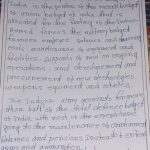 India is the portion of the overall budget
of union budget of India that is
allocated for the funding of the Indian
Armed forces. The military budget
finances employee salaries and training
costs, maintenance of equipment and
facilities, support of new or ongoing
operations, and development and
procurement of new technologies
weapons, equipment and vehicles.
The Indian army accounts for more
than half of the total defence budget
of India, with most of the expenditure
going to the maintenance of cantonments
salaries and pensions, instead of critical
arms and ammunition.